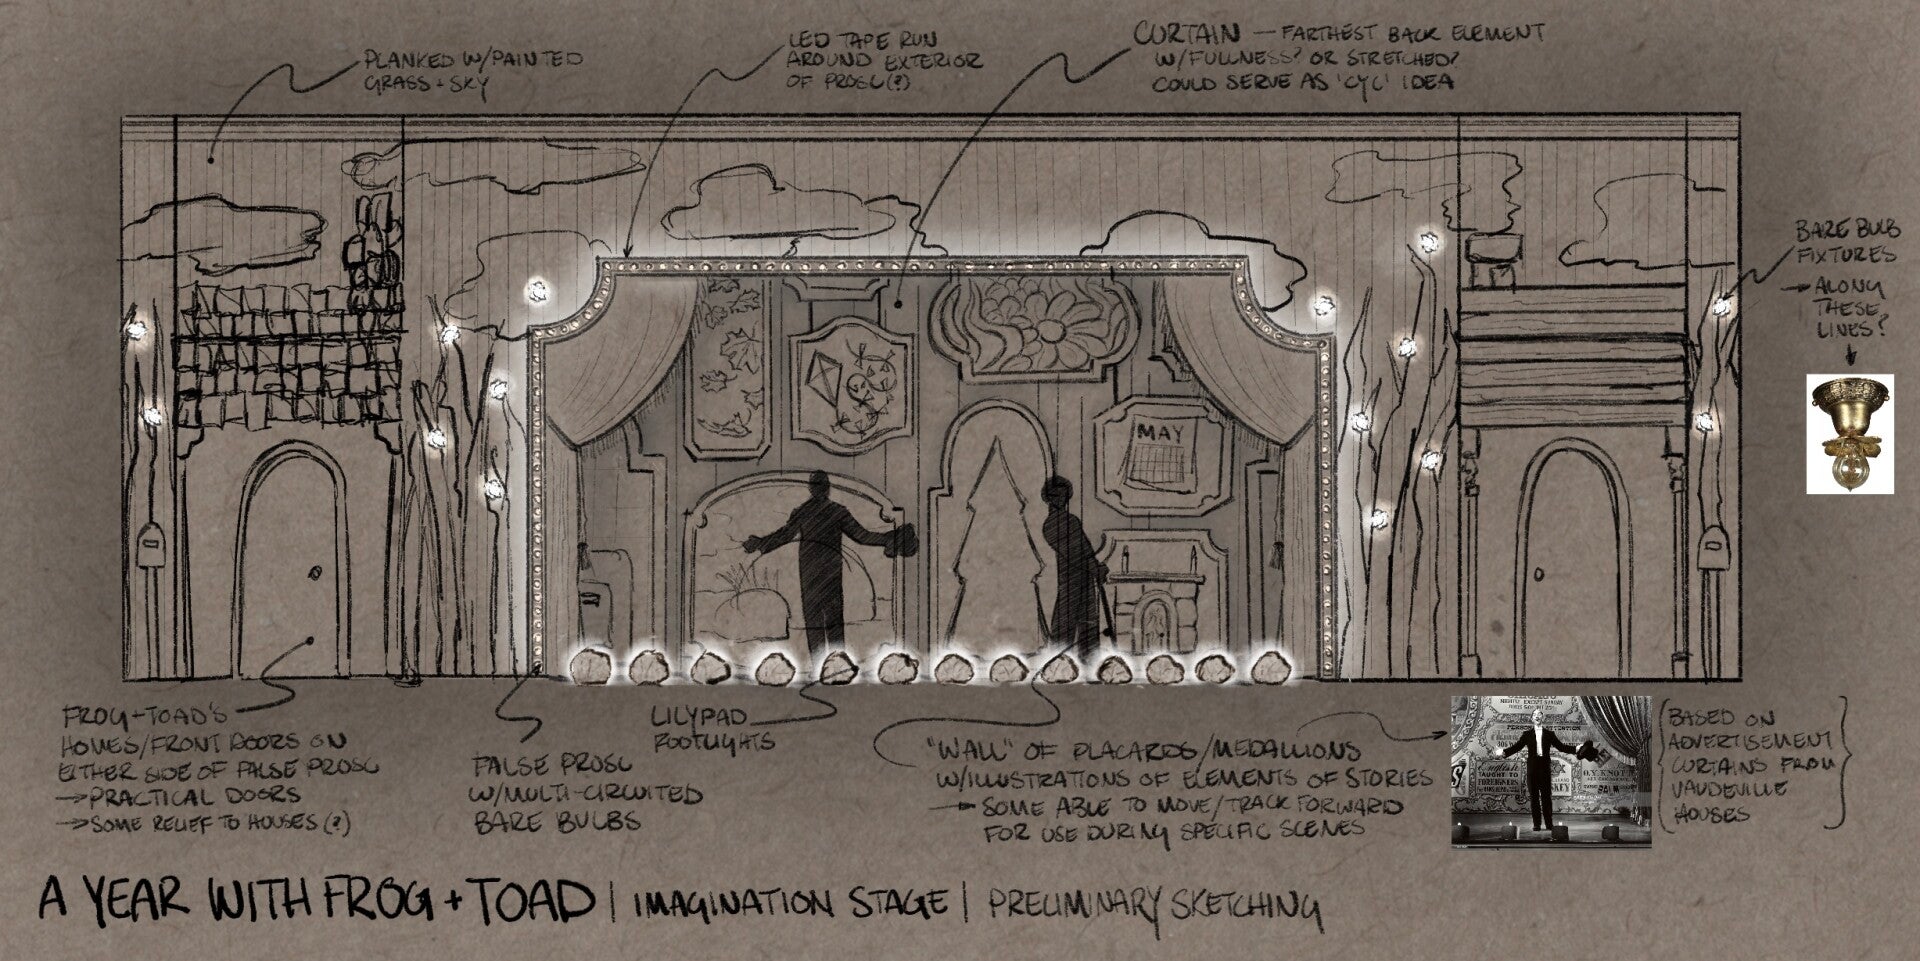 PLANKED W/PAINTED
GRASS + SKY
LED TAPE RUN
AROUND EXTERIOR
OF PROSC(?)
CURTAIN — FARTHEST BACK ELEMENT
W/FULLNESS? OR STRETCHED?
COULD SERVE AS 'CYC' IDEA
BARE BULB
FIXTURES
→ ALONG
THESE
LINES?
MAY
FROG+TOAD'S
HOMES/FRONT DOORS ON
EITHER SIDE OF FALSE PROSC
→ PRACTICAL DOORS
→ SOME RELIEF TO HOUSES(?)
FALSE PROSC
W/MULTI-CIRCUITED
BARE BULBS
LILYPAD
FOOTLIGHTS
"WALL" OF PLACARDS/MEDALLIONS
W/ILLUSTRATIONS OF ELEMENTS OF STORIES
→ SOME ABLE TO MOVE/TRACK FORWARD
FOR USE DURING SPECIFIC SCENES
English
TAUGHT TO
FOREIGNERS
BASED ON
ADVERTISEMENT
CURTAINS FROM
VAUDEVILLE
HOUSES
A YEAR WITH FROG + TOAD | IMAGINATION STAGE | PRELIMINARY SKETCHING